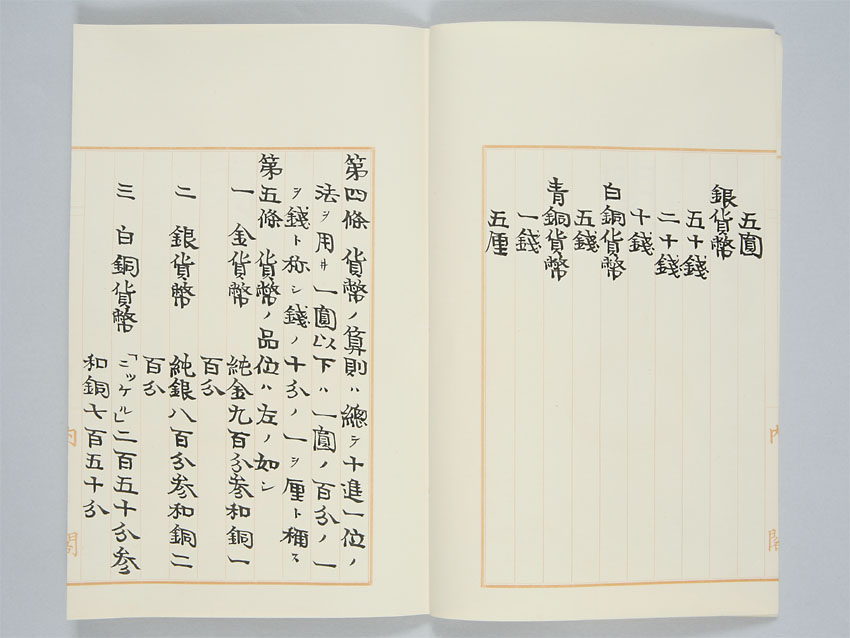 五圓
銀貨幣
五十錢
二十錢
十錢
白銅貨幣
五錢
青銅貨幣
一錢
五厘
第四條 貨幣ノ算則ハ總テ十進一位ノ
法ヲ用ヰ一圓以下ハ一圓ノ百分ノ一
ヲ錢ト称シ錢ノ十分ノ一ヲ厘ト稱ス
第五條 貨幣ノ品位ハ左ノ如シ
一 金貨幣 純金九百分参和銅一
百分
二 銀貨幣 純銀八百分参和銅二
百分
三 白銅貨幣 「ニッケル」二百五十分参
和銅七百五十分
内閣
内閣